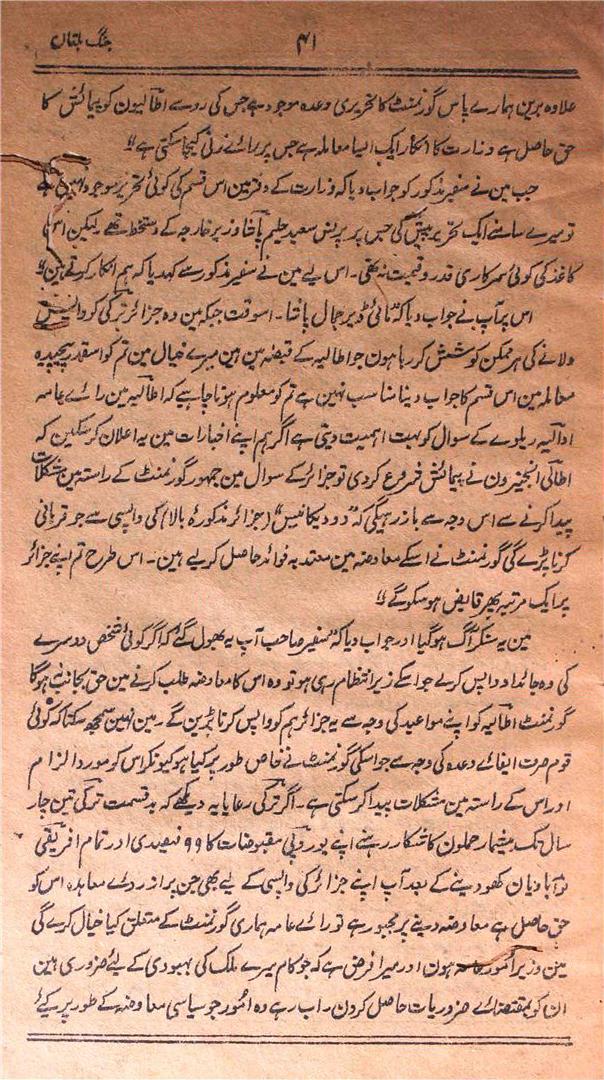 جنگ بلقان
۴۱
علاوہ برین ہمارے پاس گورنمنٹ کا تحریری وعدہ موجود ہے جس کی رو سے اطالیون کو پیمائش کا
حق حاصل ہے وزارت کا انکار ایک ایسا معاملہ ہے جس پر رائے زنی کیجا سکتی ہے"
جب مین نے سفیر مذکور کو جواب دیا کہ وزارت کے دفتر مین اس قسم کی کوئی تحریر موجود نہین ہے
تو میرے سامنے ایک تحریر پیش کی جس پر پرنس سعید حلیم پاشا وزیر خارجہ کے دستخط تھے لیکن اس
کاغذ کی کوئی سرکاری قدر و قیمت نہ تھی۔ اس لیے مین نے سفیر مذکور سے کہدیا کہ ہم انکار کرتے ہین"
اس پر آپ نے جواب دیا کہ "مائی ڈیر جمال پاشا۔ اسوقت جبکہ مین وہ جزائر ترکی کو واپس
دلانے کی ہر ممکن کوشش کر رہا ہون جو اطالیہ کے قبضہ مین ہین میرے خیال مین تم کو اسقدر پیچیدہ
معاملہ مین اس قسم کا جواب دینا مناسب نہین ہے تم کو معلوم ہونا چاہیے کہ اطالیہ مین رائے عامہ
اڈالیہ ریلوے کے سوال کو بہت اہمیت دیتی ہے اگر ہم اپنے اخبارات مین یہ اعلان کر سکین کہ
اطالی انجنیرون نے پیمائش شروع کر دی تو جزائر کے سوال مین جمہور گورنمنٹ کے راستہ مین مشکلات
پیدا کرنے سے اس وجہ سے باز رہیگی کہ "دودیکانیس" (جزائر مذکورۂ بالا) کی واپسی سے جو قربانی
کرنا پڑے گی گورنمنٹ نے اسکے معاوضہ مین معتد بہ فوائد حاصل کر لیے ہین۔ اس طرح تم اپنے جزائر
پر ایک مرتبہ پھر قابض ہو سکو گے"
مین یہ سنکر آگ ہو گیا اور جواب دیا کہ "سفیر صاحب آپ یہ بھول گئے کہ اگر کوئی شخص دوسرے
کی وہ جائداد واپس کرے جو اسکے زیر انتظام رہی ہو تو وہ اس کا معاوضہ طلب کرنے مین حق بجانب نہ ہوگا
گورنمنٹ اطالیہ کو اپنے مواعید کی وجہ سے یہ جزائر ہم کو واپس کرنا پڑین گے۔ مین نہین سمجھ سکتا کہ کوئی
قوم صرف ایفائے وعدہ کی وجہ سے جو اسکی گورنمنٹ نے خاص طور پر کیا ہو کیونکر اس کو مورد الزام
اور اس کے راستہ مین مشکلات پیدا کر سکتی ہے۔ اگر ترکی رعایا یہ دیکھے کہ بدقسمت ترکی تین چار
سال تک بیشمار حملون کا شکار رہنے اپنے یوروپی مقبوضات کا ۹۹ فیصدی اور تمام افریقی
نو آبادیان کھو دینے کے بعد آپ اپنے جزائر کی واپسی کے لیے بھی جن پر از روے معاہدہ اس کو
حق حاصل ہے معاوضہ دینے پر مجبور ہے تو رائے عامہ ہماری گورنمنٹ کے متعلق کیا خیال کرے گی
مین وزیر امور عامہ ہون اور میرا فرض ہے کہ جو کام میرے ملک کی بہبودی کے لیے ضروری ہین
ان کو بمقتضائے ضروریات حاصل کر دون رہے وہ امور جو سیاسی معاوضہ کے طور پر کیے